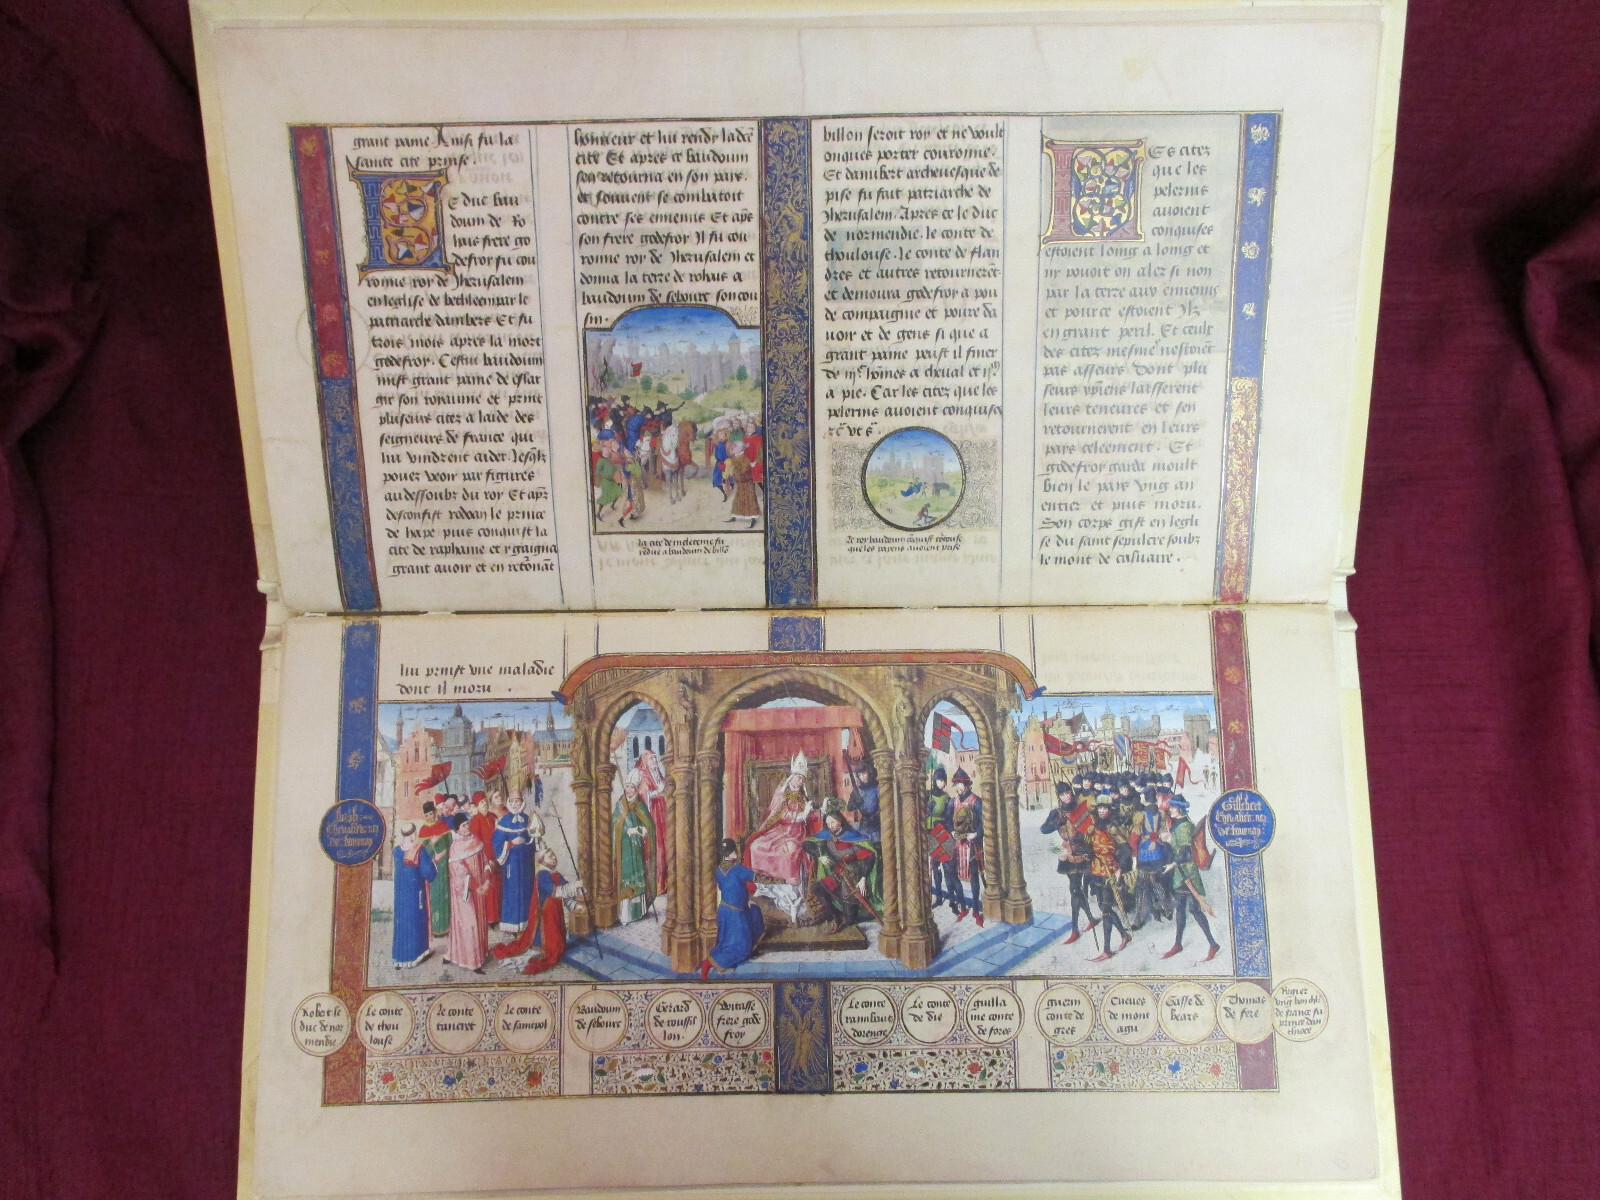 grant paine Ainsi fu la
sainte cite prinse.
Le duc bau
doum de Ro
hais frere go
defroy fu cou
ronne roy de Jherusalem
en leglise de bethleem par le
patriarche dambert Et fu
trois mois apres la mort
godefroy. Cestui baudouin
mist grant paine deslar
gir son royaume et print
plusieurs citez a laide des
seigneurs de france qui
lui vindrent aider. lesqlz
pouez veoir par figures
au dessoubz du roy Et apz
desconfist rodoan le prince
de halape puis conquist la
cite de raphanie et y gaigna
grant avoir et en retonant
lui prinst une maladie
dont il moru .
honneur et lui rendy ladce
cite Et apres ce baudouin
sen retourna en son pays.
et souvent se combatoit
contre ses ennemis Et aps
son frere godefroy Il fu cou
ronne roy de Jherusalem et
donna la terre de rohais a
baudouin de sebourc son cou
sin.
la cite de meletenie fu
rendue a baudouin de billon
billon seroit roy et ne voult
onques porter couronne.
Et daimbert archevesque de
pise fu fait patriarche de
Jherusalem. Apres ce le duc
de normendie. le conte de
thoulouse. le conte de flan
dres et autres retournerent
et demoura godefroy a pou
de compaignie et povre da
voir et de gens si que a
grant paine peust il finer
de iijc homes a cheval et ijm
a pie. Car les citez que les
pelerins avoient conquises
Le roy baudouin conquist
que les payens avoient prise
Es citez
que les
pelerins
avoient
conquises
estoient loing a loing et
ny pouoit on aler si non
par la terre aux ennemis
et pource estoient Ilz
en grant peril. Et ceulx
des citez mesmes nestoient
pas asseurs Dont plu
seurs xpiens laisserent
leurs teneures et sen
retournerent en leurs
pays celeement. Et
godefroy garda moult
bien le pays ung an
entier et puis moru.
Son corps gist en legli
se du saint sepulcre soubz
le mont de calvaire .
Chevalier nez
de tournay
Gillebert
Chevalier nez
de tournay
Robert le
duc de nor
mendie
Le conte
de thou
louse
Le conte
tancret
Le conte
de saintpol
Baudouin
de sebourc
Gerard
de roussil
lon.
Witasse
frere gode
froy
Le conte
raimbaut
dorenge
Le conte
de die
guilla
me conte
de fores
guerin
conte de
gres
Cuenes
de mont
agu
Gasse de
bears
Thomas
de fere
Rogier
ung bon chlr
de france fu
prince dan
thioce